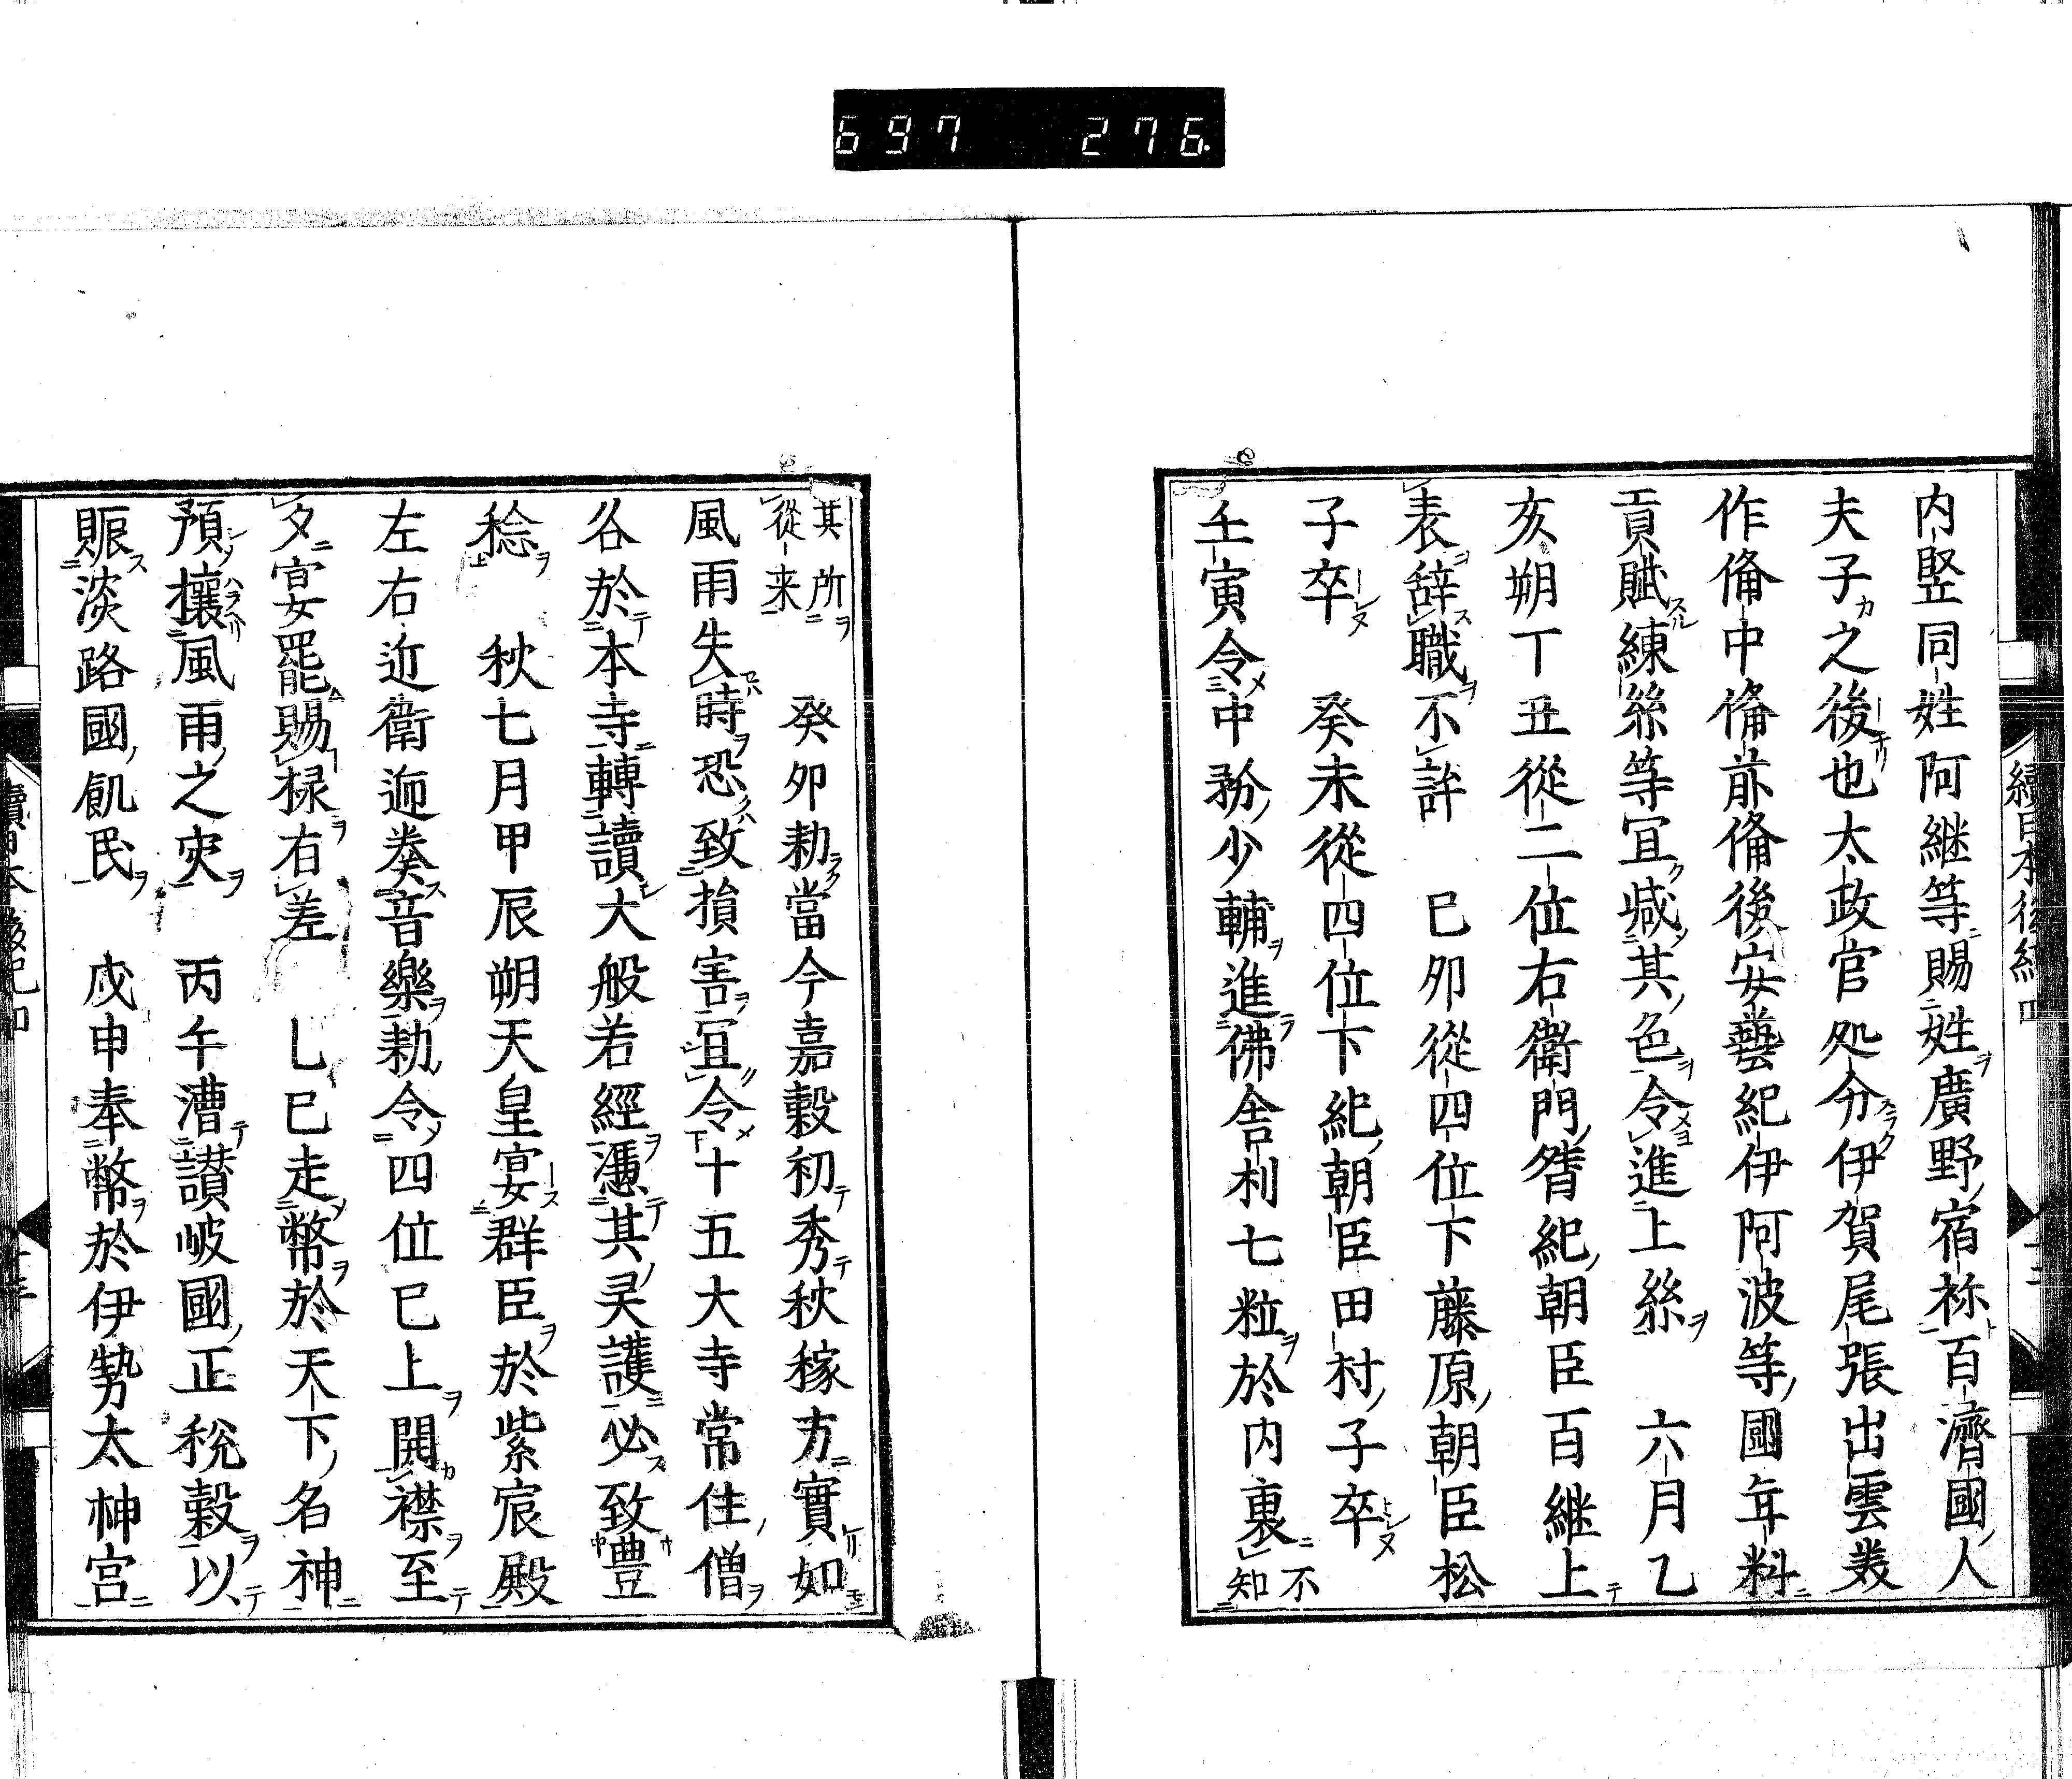 697 276.
内竪同姓阿継等賜姓廣野宿祢百濟國人
夫子之後也太政官处分伊賀尾張出雲美
作備中備前備後安藝紀伊阿波等國年料
貢賦練絲等宜減其色令進上絲 六月乙
亥朔丁丑從二位右衛門督紀朝臣百継上
表辞職不許 己卯從四位下藤原朝臣松
子卒 癸未從四位下紀朝臣田村子卒
壬寅令中務少輔進佛舍利七粒於内裏不知
其所從来 癸卯勅當今嘉穀初秀秋稼方實如
風雨失時恐致損害宜令十五大寺常住僧
各於本寺轉讀大般若經憑其灵護必致豊
稔 秋七月甲辰朔天皇宴群臣於紫宸殿
左右近衛遞奏音樂勅令四位已上開襟至
夕宴罷賜禄有差 乙巳走幣於天下名神
預攘風雨之灾 丙午漕讃岐國正税穀以
賑淡路國飢民 戊申奉幣於伊勢太神宮